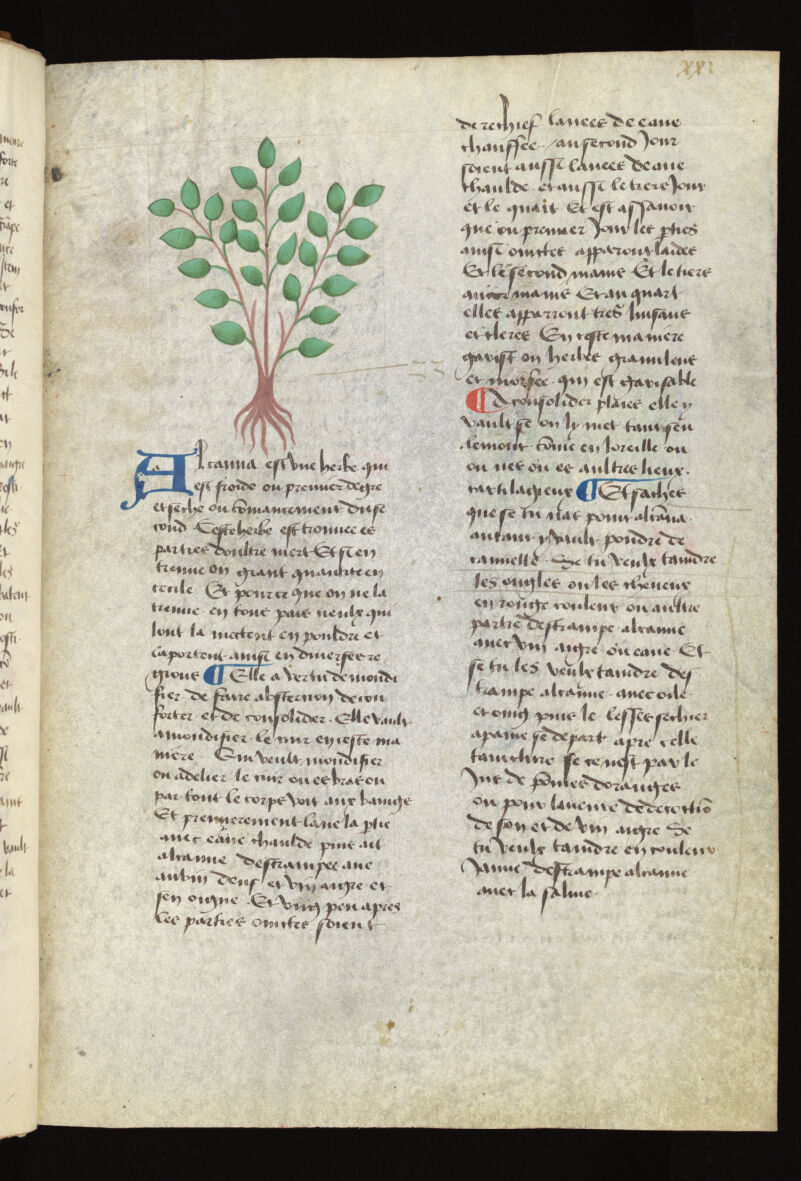 xxi
Alcanna est vne herbe qui
est froide ou premier degre
et seche ou commancement du se
cond Ceste herbe est trouuee es
parties doultre mer Et si en
treuue on grant quantite en
cecile Et pource que on ne la
treuue en tous pais ceulx qui
lont la mettent en pouldre et
laportent ainsi en diuerses re
gions Elle a vertu de mondi
fier de faire abstercion de con
forter et de consolider. Elle vault
a mondifier le cuir en ceste ma
niere Qui veult mondifier
ou adelier le cuir ou es bras ou
par tout le corps voit aux baings
Et premierement laue la ptie
auec eaue chaulde puis ait
alcanne destrampee aue
aubin deuf et vin aigre et
sen oigne Et vng peu apres
les parties ointes soient
derechief lauees de eaue
chauffee. au second Jour
soient aussi lauees deaue
chaulde. et aussi le tiers Jour
et le quart Et est assauoir
que ou premier Jour les pties
ainsi ointes apparont laides
Et le second mains Et le tiers
mains Et au quart
elles apparront tres luisans
et cleres En ceste maniere
garist on
et morfee. qui est garisable
A consolider plaies elle y
vault se on ly met tant seu
lement come en loreille ou
ou nes ou es aultres lieux.
cartilagineux Et saches
que se tu nas point alcana.
autant y vault pouldre de
cannelle. Se tu veulx taindre
les ongles ou les cheueux
en rouge couleur ou aultre
partie destrampe alcanne
auec vin aigre ou eaue Et
se tu les veulx taindre des
trampe alcanne. auec oile.
et oing puis le lesse sechier
apaine se depart apre celle
tainture se ce nest par le
Jus de pomes doranges
ou pour laueure de decoctio
de son et de vin aigre Se
tu veulx taindre en couleur
Jaune destrampe alcanne
auec la saliue.